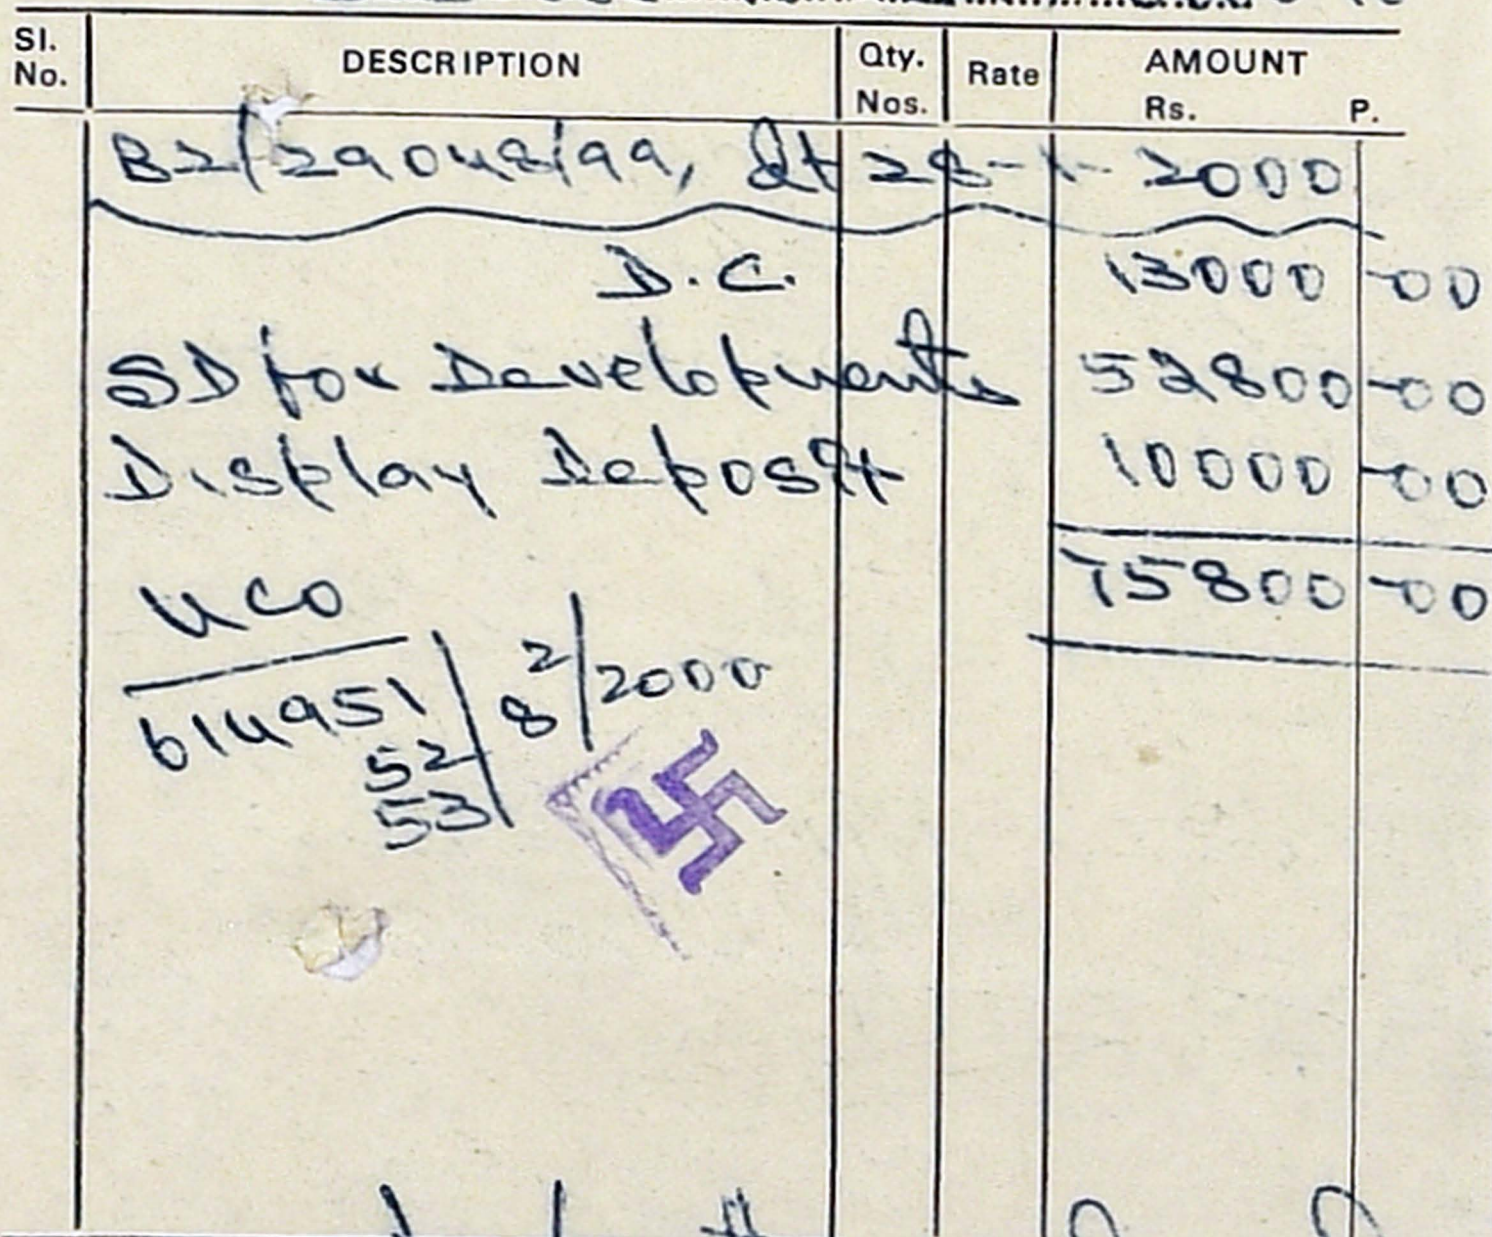 Sl. No. DESCRIPTION Qty. Nos. Rate AMOUNT Rs. P.
B2/29048/99, dt 28-1-2000
D.C. 13000-00
SD for Developments 52800-00
Display Deposit 10000-00
75800-00
UCO
614951 2/8/2000
52
53